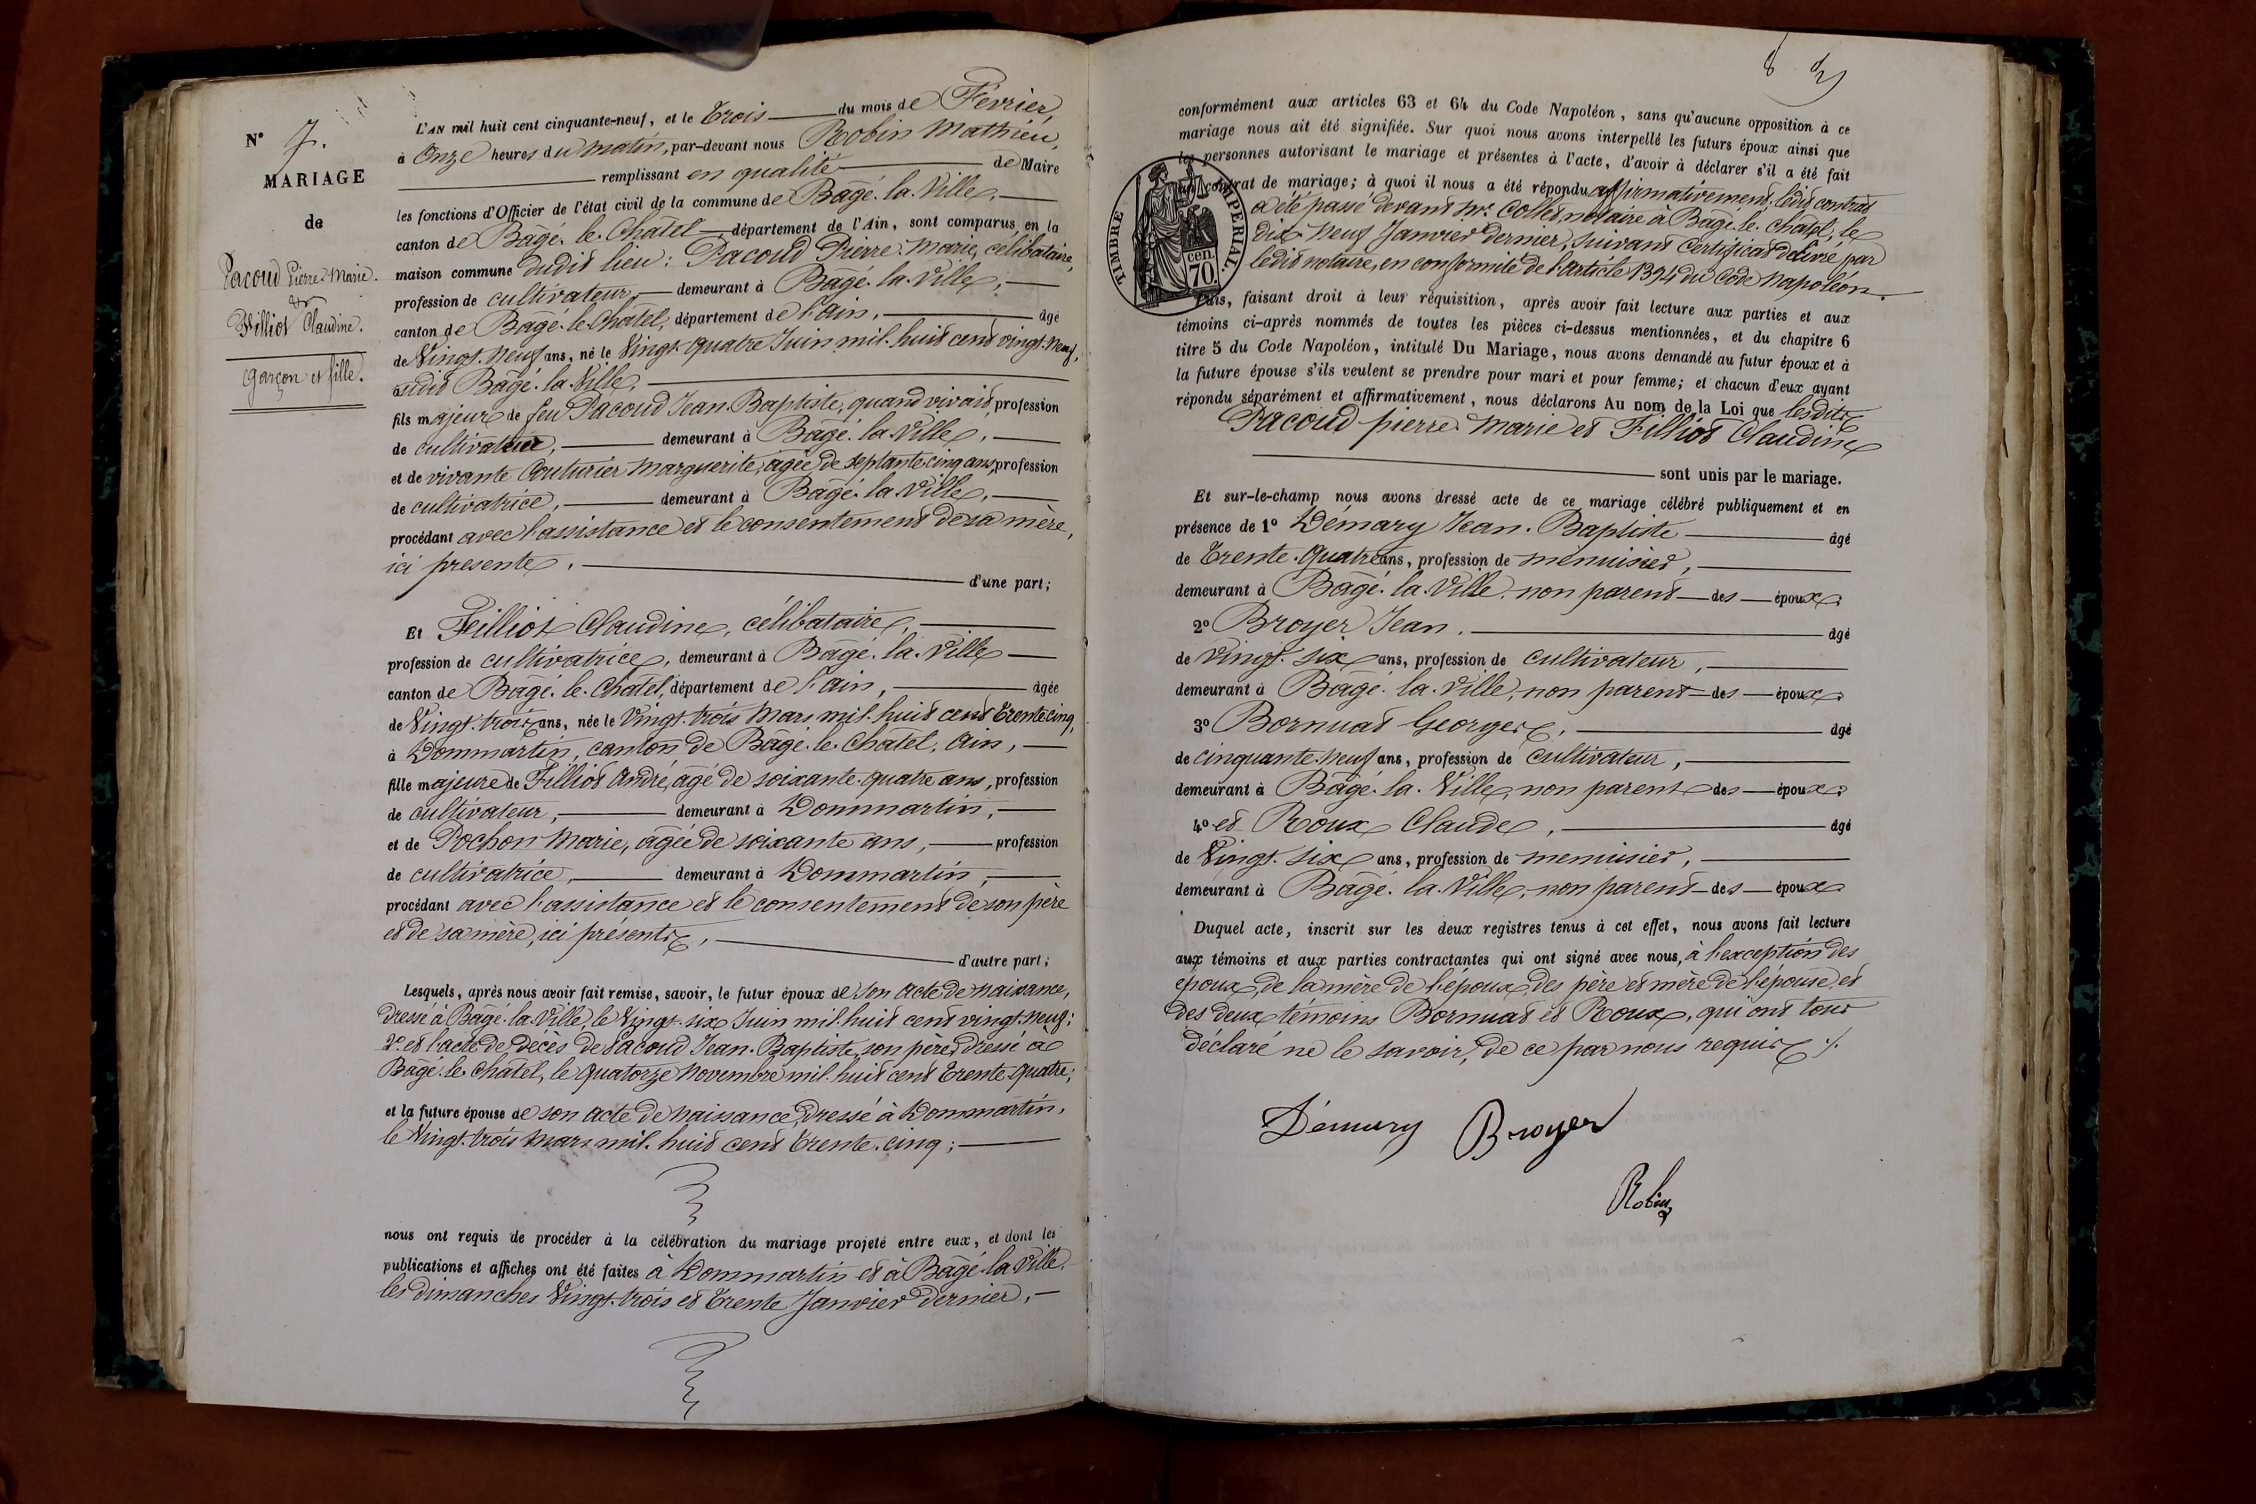 N° 7.
MARIAGE
de
Pacoud Pierre-Marie.
et
Filliot Claudine.
Garçon et fille.
L'AN mil huit cent cinquante-neuf, et le Trois du mois de Février,
à Onze heures du matin, par-devant nous Robin Mathieu,
remplissant en qualité de Maire
les fonctions d'Officier de l'état civil de la commune de Bâgé-la-Ville,
canton de Bâgé-le-Châtel, département de l'Ain, sont comparus en la
maison commune dudit lieu : Pacoud Pierre-Marie, célibataire,
profession de cultivateur, demeurant à Bâgé-la-Ville,
canton de Bâgé-le-Châtel, département de l'ain, âgé
de Vingt-neuf ans, né le Vingt-quatre Juin mil-huit cent vingt-neuf,
audit Bâgé-la-Ville,
fils majeur de feu Pacoud Jean-Baptiste, quand vivait, profession
de cultivateur, demeurant à Bâgé-la-Ville,
et de vivante Couturier Marguerite, âgée de septante-cinq ans, profession
de cultivatrice, demeurant à Bâgé-la-Ville,
procédant avec l'assistance et le consentement de sa mère,
ici présente. d'une part;
Et Filliot Claudine, célibataire,
profession de cultivatrice, demeurant à Bâgé-la-Ville
canton de Bâgé-le-Châtel, département de l'ain, âgée
de Vingt-trois ans, née le Vingt-trois Mars mil-huit cent Trente-cinq,
à Dommartin, canton de Bâgé-le-Châtel, Ain,
fille majeure de Filliot André, âgé de soixante-quatre ans, profession
de cultivateur, demeurant à Dommartin,
et de Pochon Marie, âgée de soixante ans, profession
de cultivatrice, demeurant à Dommartin,
procédant avec l'assistance et le consentement de son père
et de sa mère, ici présents, d'autre part;
Lesquels, après nous avoir fait remise, savoir, le futur époux de son acte de naissance,
dressé à Bâgé-la-Ville, le Vingt-six Juin mil-huit cent vingt-neuf;
2° et l'acte de décès de Pacoud Jean-Baptiste, son père, dressé à
Bâgé-le-Châtel, le quatorze Novembre mil-huit cent Trente-quatre;
et la future épouse de son acte de naissance, dressé à Dommartin,
le Vingt-trois Mars mil-huit cent Trente-cinq;
nous ont requis de procéder à la célébration du mariage projeté entre eux, et dont les
publications et affiches ont été faites à Dommartin et à Bâgé-la-Ville
les dimanches Vingt-trois et Trente Janvier dernier,
conformément aux articles 63 et 64 du Code Napoléon, sans qu'aucune opposition à ce
mariage nous ait été signifiée. Sur quoi nous avons interpellé les futurs époux ainsi que
les personnes autorisant le mariage et présentes à l'acte, d'avoir à déclarer s'il a été fait
contrat de mariage; à quoi il nous a été répondu affirmativement. ledit contrat
a été passé devant Mr. Collet, notaire à Bâgé-le-Châtel, le
dix-neuf Janvier dernier, suivant certificat délivré par
ledit notaire, en conformité de l'article 1394 du Code Napoléon.
TIMBRE IMPERIAL.
cen. 70.
Puis, faisant droit à leur réquisition, après avoir fait lecture aux parties et aux
témoins ci-après nommés de toutes les pièces ci-dessus mentionnées, et du chapitre 6
titre 5 du Code Napoléon, intitulé Du Mariage, nous avons demandé au futur époux et à
la future épouse s'ils veulent se prendre pour mari et pour femme; et chacun d'eux ayant
répondu séparément et affirmativement, nous déclarons Au nom de la Loi que lesdits
Pacoud pierre-Marie et Filliot Claudine
sont unis par le mariage.
Et sur-le-champ nous avons dressé acte de ce mariage célébré publiquement et en
présence de 1° Démary Jean-Baptiste âgé
de Trente-quatre ans, profession de menuisier,
demeurant à Bâgé-la-Ville, non parent des époux;
2° Broyer Jean, âgé
de vingt-six ans, profession de cultivateur,
demeurant à Bâgé-la-Ville, non parent des époux;
3° Bornuat Georges, âgé
de cinquante-neuf ans, profession de cultivateur,
demeurant à Bâgé-la-Ville, non parent des époux;
4° et Roux Claude, âgé
de Vingt-six ans, profession de menuisier,
demeurant à Bâgé-la-Ville, non parent des époux
Duquel acte, inscrit sur les deux registres tenus à cet effet, nous avons fait lecture
aux témoins et aux parties contractantes qui ont signé avec nous, à l'exception des
époux, de la mère de l'époux, des père et mère de l'épouse, et
des deux témoins Bornuat et Roux, qui ont tous
déclaré ne le savoir, de ce par nous requis ./.
Démary Broyer
Robin